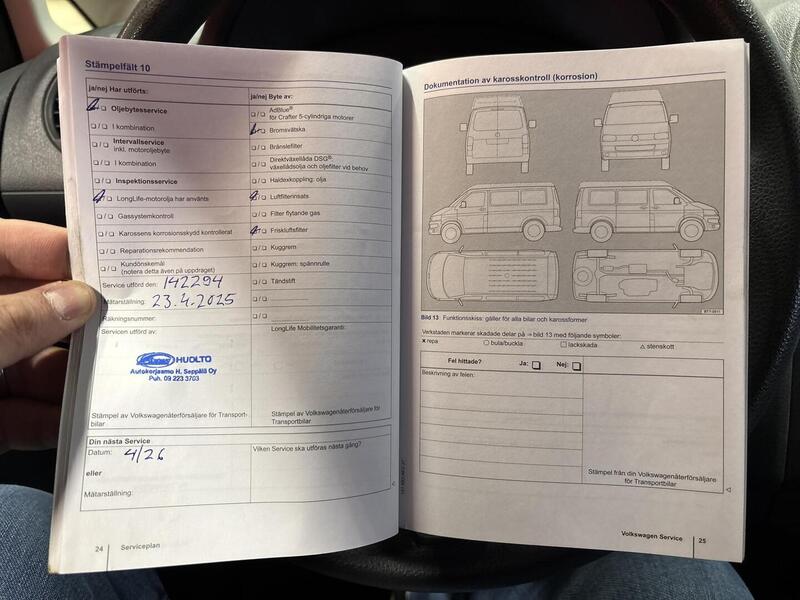 Stämpelfält 10
ja/nej Har utförts:
ja/nej Byte av:
Oljebytesservice
I kombination
Intervallservice
inkl. motoroljebyte
I kombination
Inspektionsservice
LongLife-motorolja har använts
Gassystemkontroll
Karossens korrosionsskydd kontrollerat
Reparationsrekommendation
Kundönskemål
(notera detta även på uppdraget)
AdBlue®
för Crafter 5-cylindriga motorer
Bromsvätska
Bränslefilter
Direktväxellåda DSG®:
växellådsolja och oljefilter vid behov
Haldexkoppling: olja
Luftfilterinsats
Filter flytande gas
Friskluftsfilter
Kuggrem
Kuggrem: spännrulle
Tändstift
Service utförd den: 142294
Mätarställning: 23.4.2025
Räkningsnummer:
Servicen utförd av:
LongLife Mobilitetsgaranti:
HUOLTO
Autokorjaamo H. Seppälä Oy
Puh. 09 223 3703
Stämpel av Volkswagenåterförsäljare för Transport-
bilar
Stämpel av Volkswagenåterförsäljare för
Transportbilar
Din nästa Service
Datum: 4/26
Vilken Service ska utföras nästa gång?
eller
Mätarställning:
24 Serviceplan
Dokumentation av karosskontroll (korrosion)
Bild 13 Funktionsskiss: gäller för alla bilar och karossformer
Verkstaden markerar skadade delar på ⇒ bild 13 med följande symboler:
x repa
○ bula/buckla
□ lackskada
△ stenskott
Fel hittade? Ja: Nej:
Beskrivning av felen:
Stämpel från din Volkswagenåterförsäljare
för Transportbilar
Volkswagen Service 25